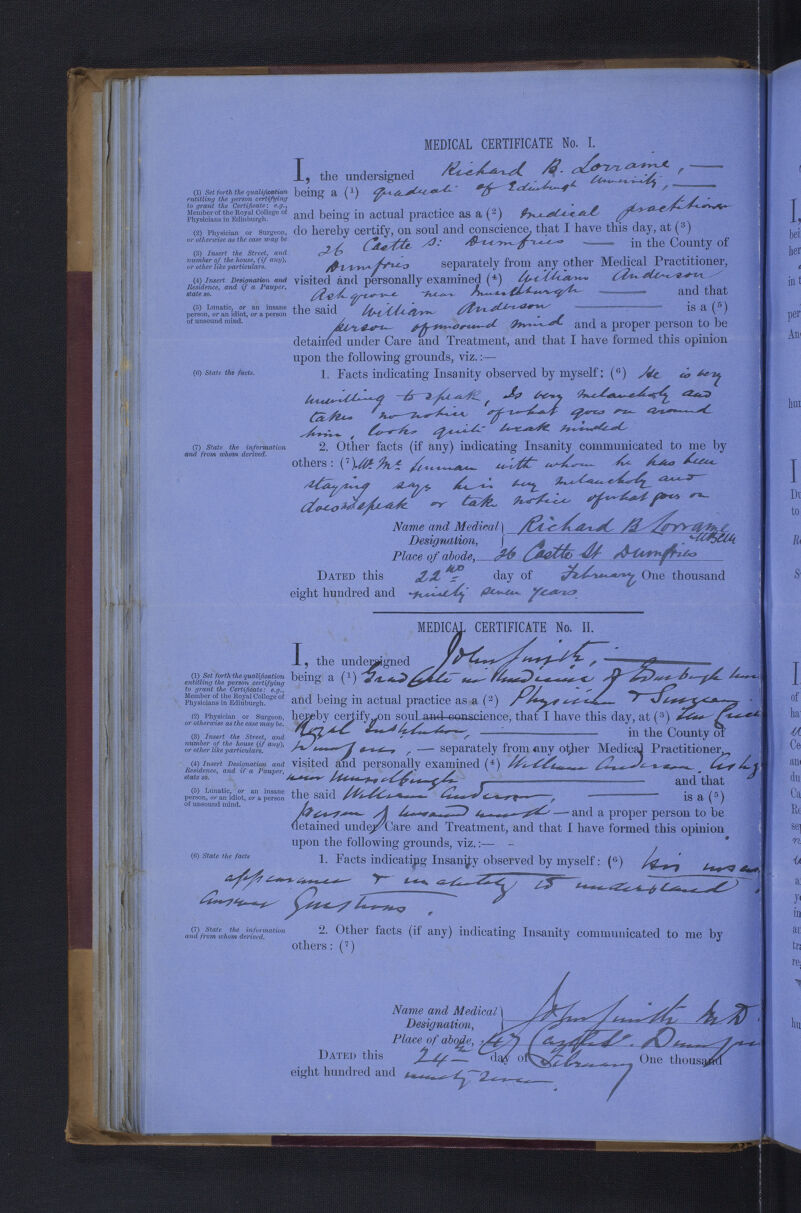 MEDICAL CERTIFICATE No. I.
I, the undersigned Richard B. Lorraine, —
(1) Set forth the qualification entitling the person certifying to grant the Certificate: e.g., Member of the Royal College of Physicians in Edinburgh.
being a (1) graduate of Edinburgh University, —
and being in actual practice as a (2) medical practitioner
(2) Physician or Surgeon, or otherwise as the case may be
do hereby certify, on soul and conscience, that I have this day, at (3)
26 Castle St Dumfries — in the County of
(3) Insert the Street, and number of the house, (if any), or other like particulars.
Dumfries separately from any other Medical Practitioner,
(4) Insert Designation and Residence, and if a Pauper, state so.
visited and personally examined (4) William Anderson
Ashgrove near Musselburgh — and that
(5) Lunatic, or an insane person, or an idiot, or a person of unsound mind.
the said William Anderson — is a (5)
person of unsound mind and a proper person to be
detained under Care and Treatment, and that I have formed this opinion
upon the following grounds, viz.:—
(6) State the facts.
1. Facts indicating Insanity observed by myself; (6) He is very
unwilling to speak, Is very melancholy and
takes no notice of what goes on around
him, looks quite weak minded
(7) State the information and from whom derived.
2. Other facts (if any) indicating Insanity communicated to me by
others: (7) with whom he has been
staying says he is very melancholy and
does not speak or take notice of what goes on
Name and Medical Designation, Richard B Lorraine MBCM
Place of abode, 26 Castle St Dumfries
DATED this 22nd day of February One thousand
eight hundred and ninety seven years
MEDICAL CERTIFICATE No. II.
I, the undersigned John Smith, —
(1) Set forth the qualification entitling the person certifying to grant the Certificate: e.g., Member of the Royal College of Physicians in Edinburgh.
being a (1) Graduate in Medicine of Edinburgh
and being in actual practice as a (2) Physician & Surgeon
(2) Physician or Surgeon, or otherwise as the case may be.
hereby certify, on soul and conscience, that I have this day, at (3)
Royal Institution, — in the County of
(3) Insert the Street, and number of the house (if any), or other like particulars.
Dumfries, — separately from any other Medical Practitioner,
(4) Insert Designation and Residence, and if a Pauper, state so.
visited and personally examined (4) William Anderson,
near Musselburgh — and that
(5) Lunatic, or an insane person, or an idiot, or a person of unsound mind.
the said William Anderson, — is a (5)
person of unsound mind — and a proper person to be
detained under Care and Treatment, and that I have formed this opinion
upon the following grounds, viz.:—
(6) State the facts
1. Facts indicating Insanity observed by myself: (6) His
appearance & inability to understand
answer questions.
(7) State the information and from whom derived.
2. Other facts (if any) indicating Insanity communicated to me by
others: (7)
Name and Medical Designation, John Smith MD.
Place of abode, 47 Castle St. Dumfries
DATED this 24th day of February One thousand
eight hundred and ninety seven